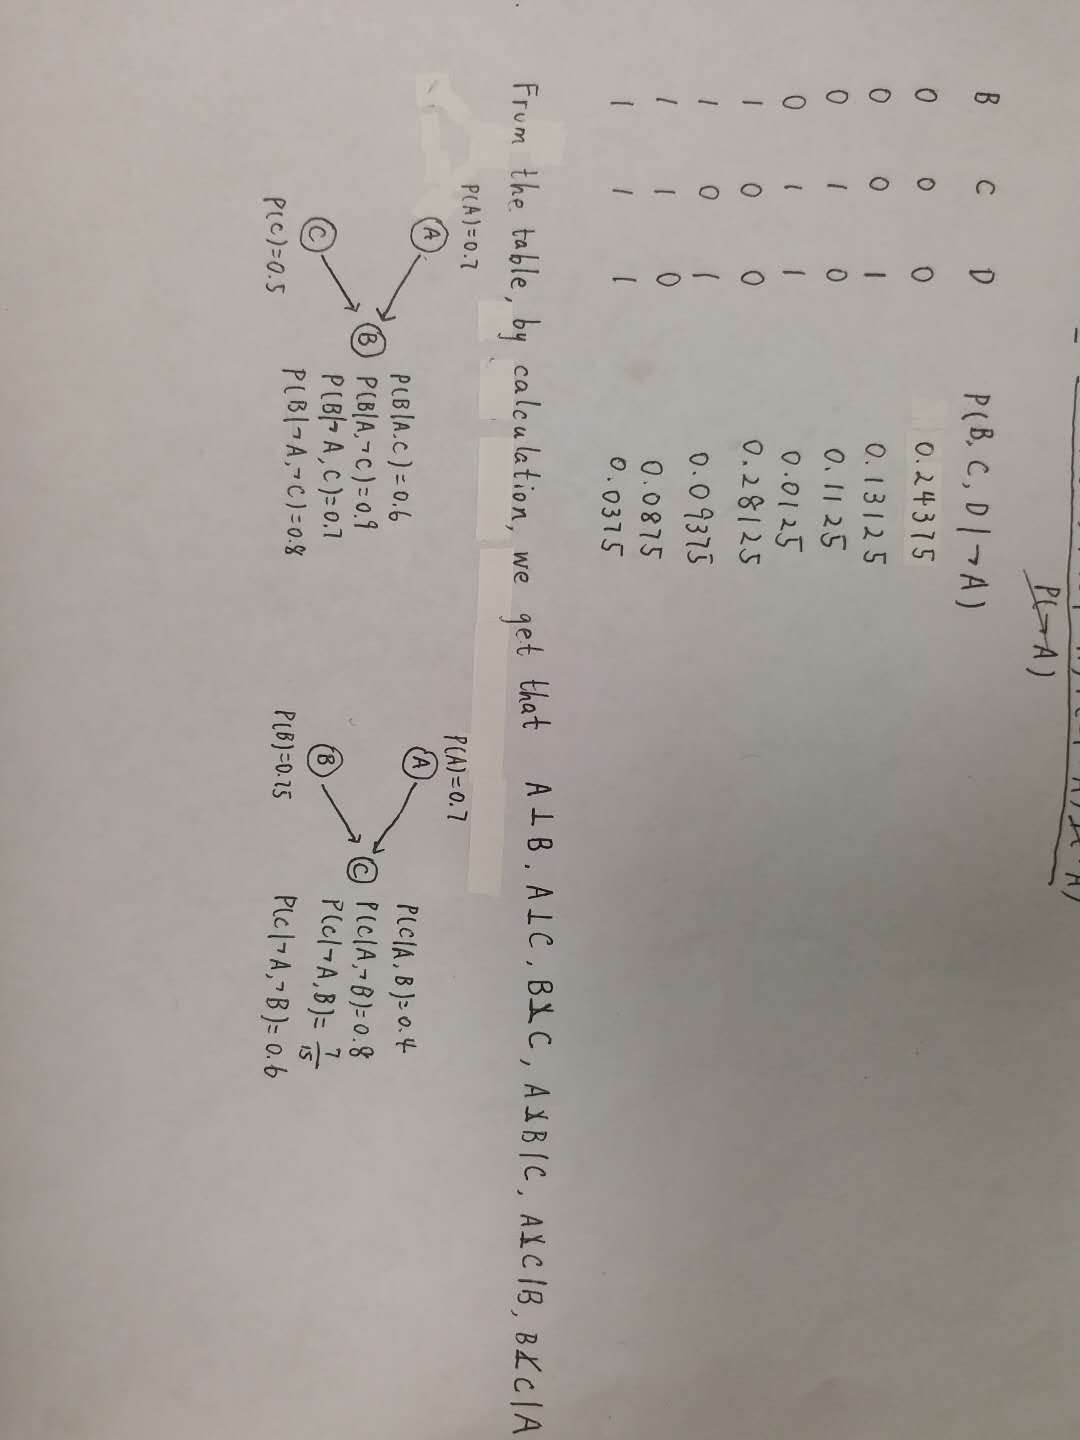 P(¬A)
B C D P(B, C, D | ¬A)
0 0 0 0.24375
0 0 1 0.13125
0 1 0 0.1125
0 1 1 0.0125
1 0 0 0.28125
1 0 1 0.09375
1 1 0 0.0875
1 1 1 0.0375
From the table, by calculation, we get that A⊥B, A⊥C, B⊥̸C, A⊥̸B|C, A⊥̸C|B, B⊥̸C|A
P(A)=0.7
A
P(B|A,C)=0.6
B P(B|A,¬C)=0.9
P(B|¬A,C)=0.7
P(B|¬A,¬C)=0.8
C
P(C)=0.5
P(A)=0.7
A
P(C|A,B)=0.4
C P(C|A,¬B)=0.8
P(C|¬A,B)=7/15
P(C|¬A,¬B)=0.6
B
P(B)=0.75